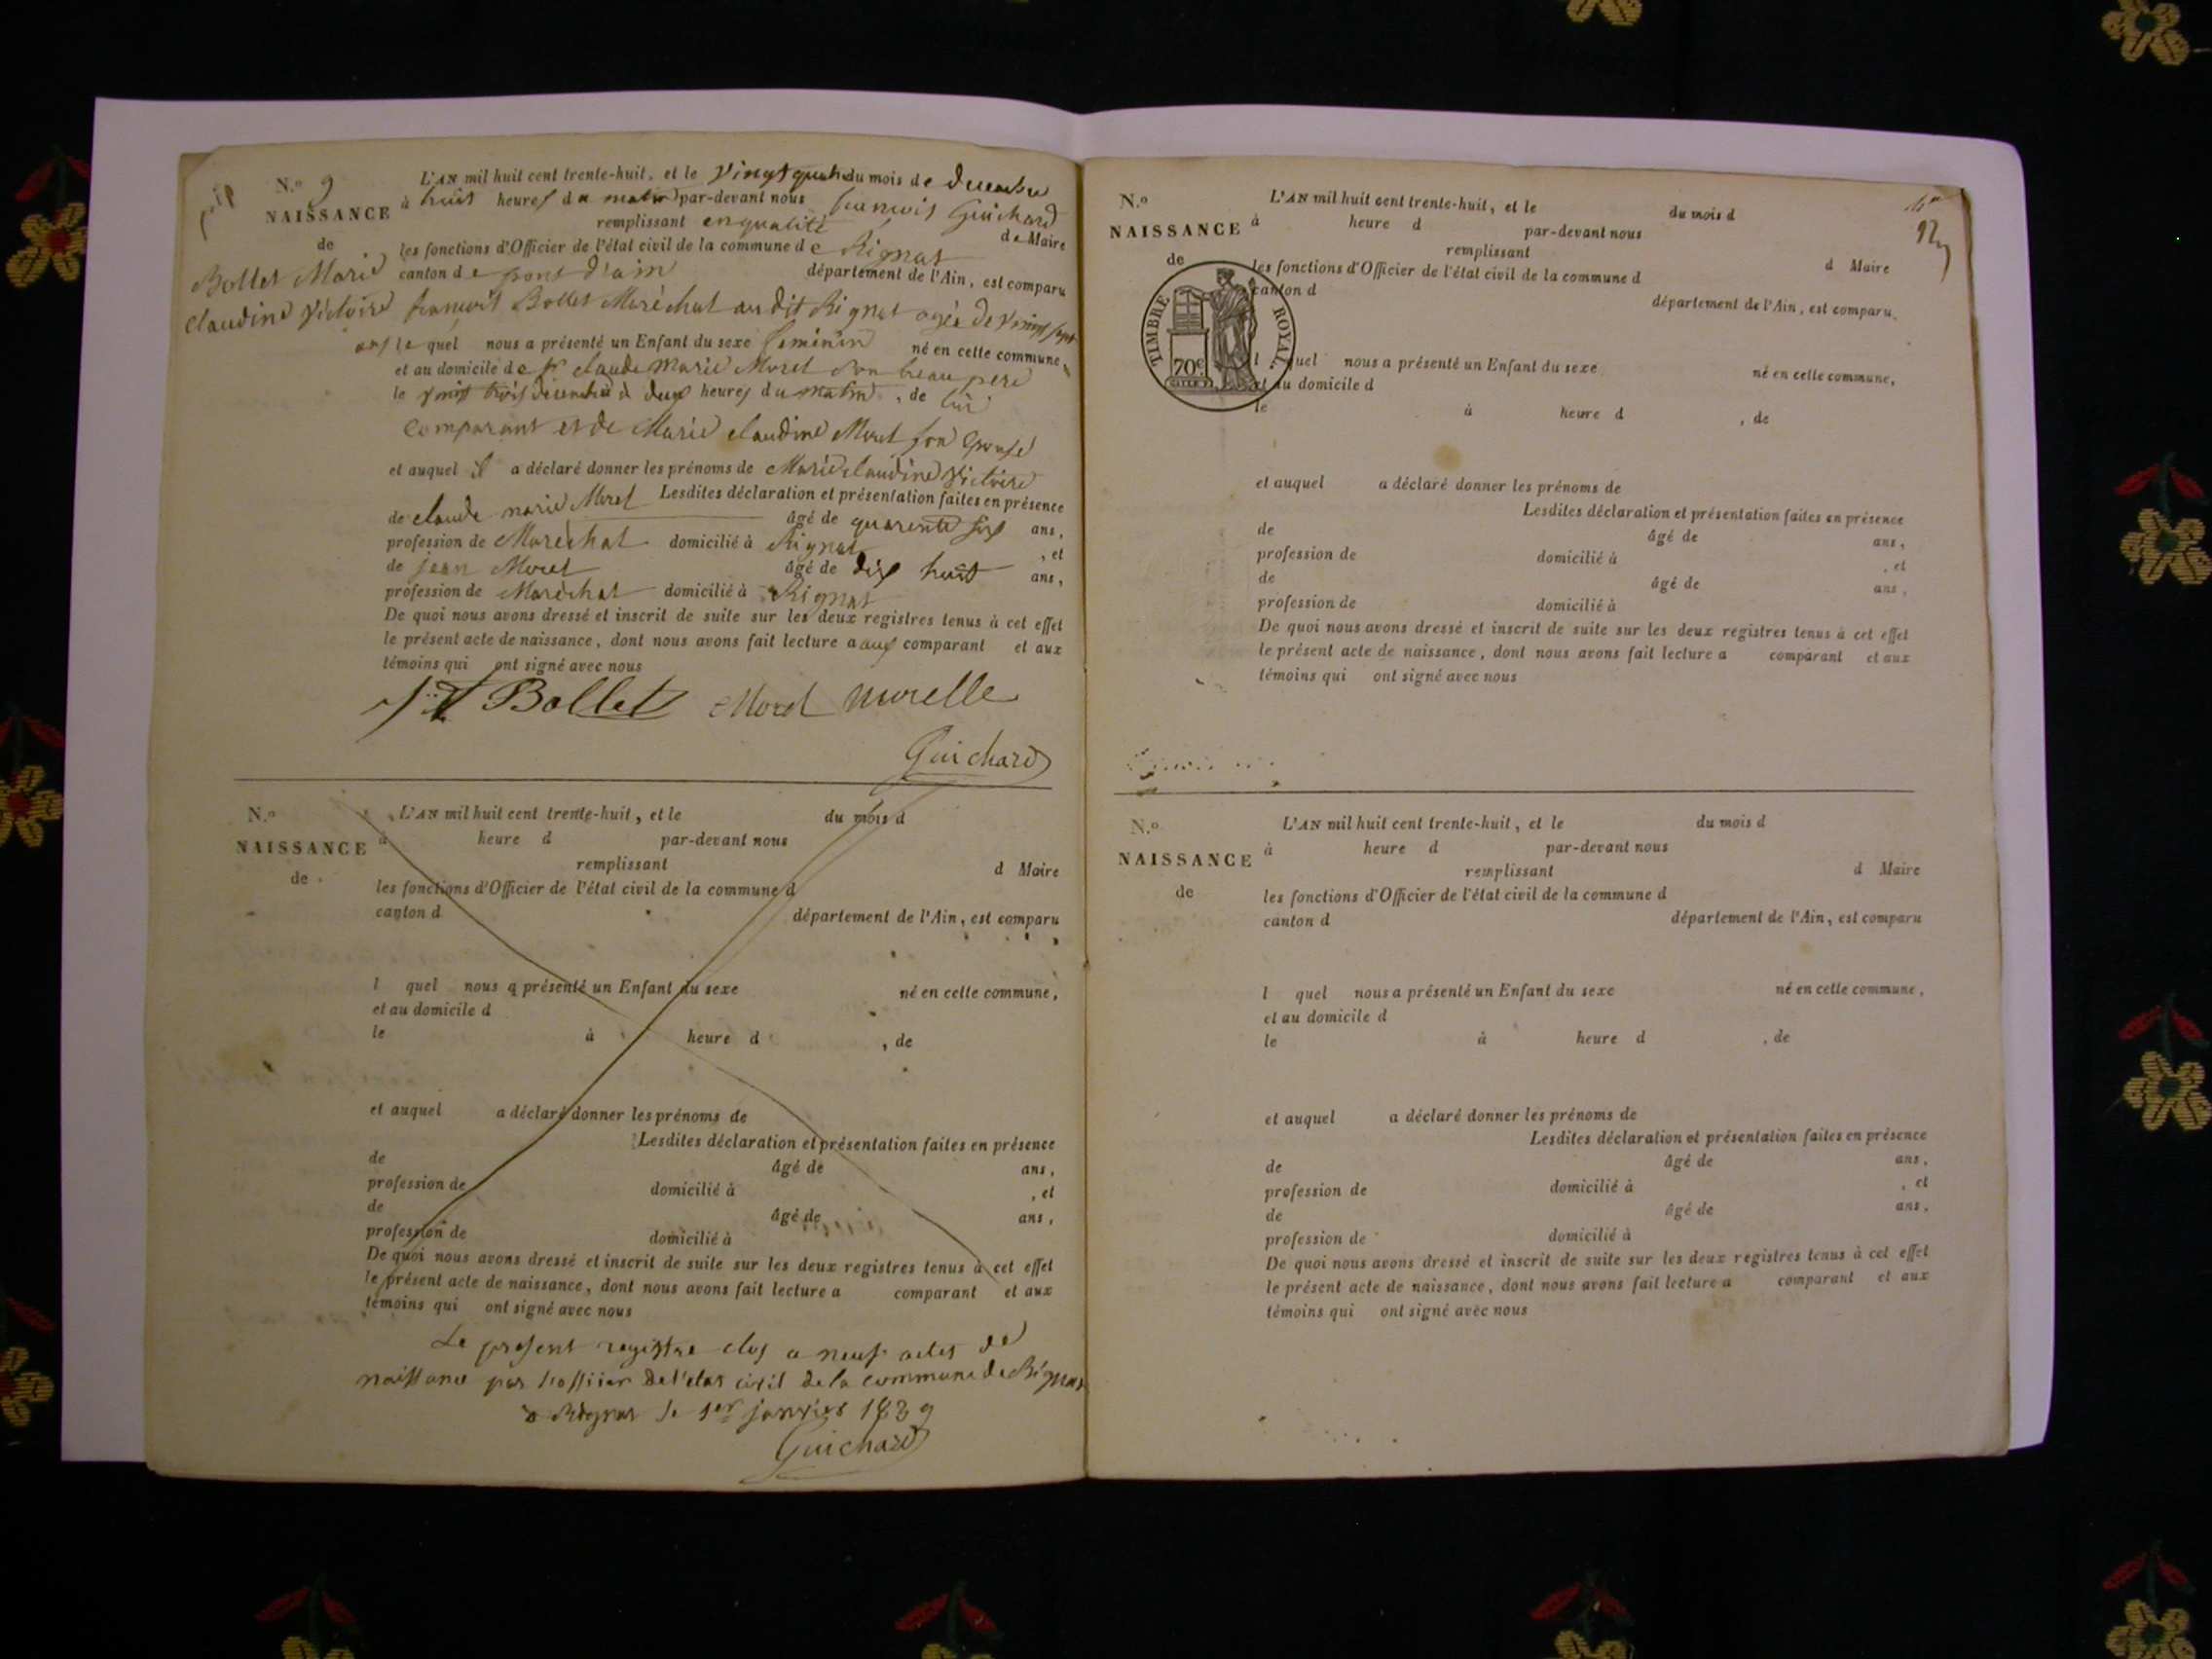 N.o 9
NAISSANCE
de
Bollet Marie
Claudine Victoire
L'AN mil huit cent trente-huit, et le vingt quatre du mois de decembre
à huit heures du matin par-devant nous françois Guichard
remplissant en qualité de Maire
les fonctions d'Officier de l'état civil de la commune de Rignat
canton de pont d'ain département de l'Ain, est comparu
françois Bollet Maréchal au dit Rignat agée de vingt sept
ans lequel nous a présenté un Enfant du sexe feminin né en cette commune,
et au domicile de sr claude Marie Morel son beau pere
le vingt trois decembre à deux heures du matin, de lui
comparant et de Marie claudine Morel son epouse
et auquel il a déclaré donner les prénoms de Marie claudine Victoire
Lesdites déclaration et présentation faites en présence
de claude marie Morel âgé de quarente six ans,
profession de Maréchal domicilié à Rignat, et
de jean Morel âgé de dix huit ans,
profession de Maréchal domicilié à Rignat
De quoi nous avons dressé et inscrit de suite sur les deux registres tenus à cet effet
le présent acte de naissance, dont nous avons fait lecture a aux comparant et aux
témoins qui ont signé avec nous
Bollet Morel Morelle
Guichard
N.o
NAISSANCE
de
L'AN mil huit cent trente-huit, et le du mois d
à heure d par-devant nous
remplissant d Maire
les fonctions d'Officier de l'état civil de la commune d
canton d département de l'Ain, est comparu
l quel nous a présenté un Enfant du sexe né en cette commune,
et au domicile d
le à heure d , de
et auquel a déclaré donner les prénoms de
Lesdites déclaration et présentation faites en présence
de âgé de ans,
profession de domicilié à , et
de âgé de ans,
profession de domicilié à
De quoi nous avons dressé et inscrit de suite sur les deux registres tenus à cet effet
le présent acte de naissance, dont nous avons fait lecture a comparant et aux
témoins qui ont signé avec nous
Le present registre clos a neuf actes de
naissance par l'officier de l'etat civil de la commune de Rignat
a Rignat le 1er janvier 1839
Guichard
N.o
NAISSANCE
de
TIMBRE ROYAL
70c
L'AN mil huit cent trente-huit, et le du mois d
à heure d par-devant nous
remplissant d Maire
les fonctions d'Officier de l'état civil de la commune d
canton d département de l'Ain, est comparu
l quel nous a présenté un Enfant du sexe né en cette commune,
et au domicile d
le à heure d , de
et auquel a déclaré donner les prénoms de
Lesdites déclaration et présentation faites en présence
de âgé de ans,
profession de domicilié à , et
de âgé de ans,
profession de domicilié à
De quoi nous avons dressé et inscrit de suite sur les deux registres tenus à cet effet
le présent acte de naissance, dont nous avons fait lecture a comparant et aux
témoins qui ont signé avec nous
N.o
NAISSANCE
de
L'AN mil huit cent trente-huit, et le du mois d
à heure d par-devant nous
remplissant d Maire
les fonctions d'Officier de l'état civil de la commune d
canton d département de l'Ain, est comparu
l quel nous a présenté un Enfant du sexe né en cette commune,
et au domicile d
le à heure d , de
et auquel a déclaré donner les prénoms de
Lesdites déclaration et présentation faites en présence
de âgé de ans,
profession de domicilié à , et
de âgé de ans,
profession de domicilié à
De quoi nous avons dressé et inscrit de suite sur les deux registres tenus à cet effet
le présent acte de naissance, dont nous avons fait lecture a comparant et aux
témoins qui ont signé avec nous